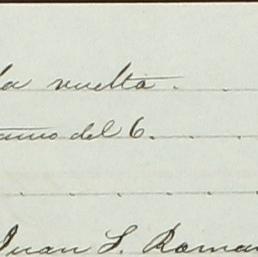 la vuelta.
del 6.
Juan S. Roma